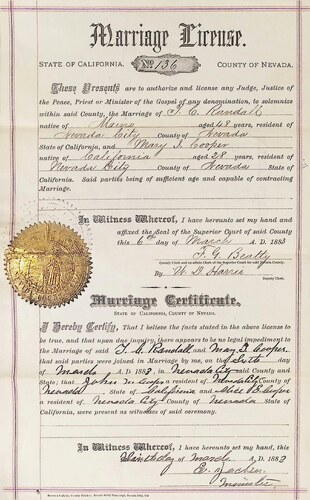 Marriage License.
STATE OF CALIFORNIA. No. 136 COUNTY OF NEVADA.
These Presents are to authorize and license any Judge, Justice of
the Peace, Priest or Minister of the Gospel of any denomination, to solemnize
within said County, the Marriage of T. C. Randall
native of Maine aged 48 years, resident of
Nevada City County of Nevada
State of California, and Mary I. Cooper
native of California aged 28 years, resident of
Nevada City County of Nevada State of
California. Said parties being of sufficient age and capable of contracting
Marriage.
In Witness Whereof, I have hereunto set my hand and
affixed the Seal of the Superior Court of said County
this 6th day of March A. D. 1883
F. G. Beatty
County Clerk and ex-officio Clerk of the Superior Court for said Nevada County.
By W D Harris
Deputy Clerk.
Marriage Certificate.
STATE OF CALIFORNIA, COUNTY OF NEVADA.
I Hereby Certify, That I believe the facts stated in the above license
to be true, and that upon due inquiry, there appears to be no legal impediment to
the Marriage of said T. C. Randall and May D. Cooper
that said parties were joined in Marriage by me, on the Sixth day
of March A. D. 1883, in Nevada City said County and
State; that John M. Cooper a resident of Nevada City County of
Nevada State of California and Alice Cooper
a resident of Nevada City County of Nevada State of
California, were present as witnesses of said ceremony.
In Witness Whereof, I have hereunto set my hand, this
day of March A. D. 1883
Minister